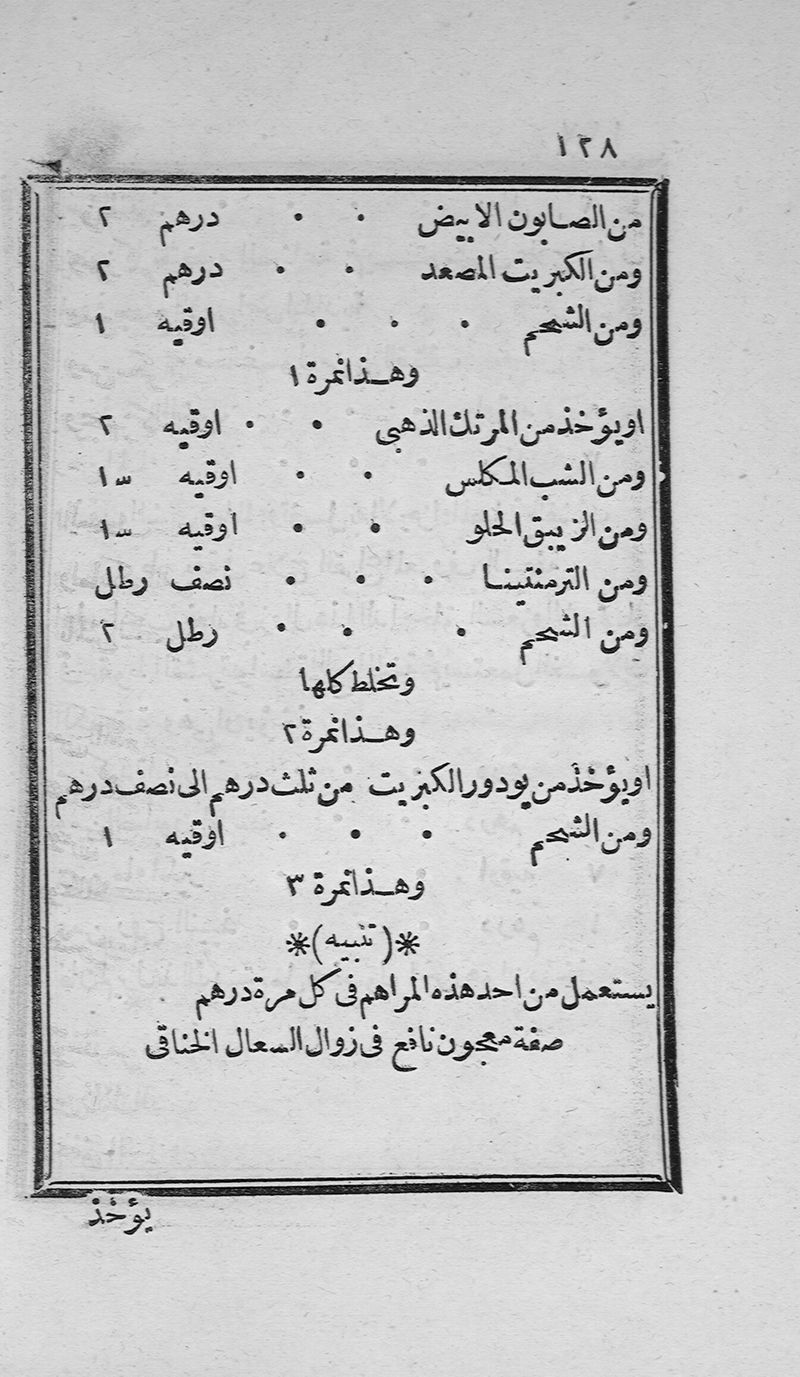 ١٢٨
من الصابون الابيض ٠ ٠ درهم ٢
ومن الكبريت المصعد ٠ ٠ درهم ٢
ومن الشحم ٠ ٠ ٠ اوقيه ١
وهذا نمرة ١
او يؤخذ من المرتك الذهبى ٠ ٠ اوقيه ٢
ومن الشب المكلس ٠ ٠ اوقيه ١
ومن الزيبق الحلو ٠ ٠ اوقيه ١
ومن الترمنتينا ٠ ٠ ٠ نصف رطل
ومن الشحم ٠ ٠ ٠ رطل ٢
وتخلط كلها
وهذا نمرة ٢
او يؤخذ من يودور الكبريت من ثلث درهم الى نصف درهم
ومن الشحم ٠ ٠ ٠ اوقيه ١
وهذا نمرة ٣
*(تنبيه)*
يستعمل من احد هذه المراهم فى كل مرة درهم
صفة معجون نافع فى زوال السعال الخناقى
يؤخذ